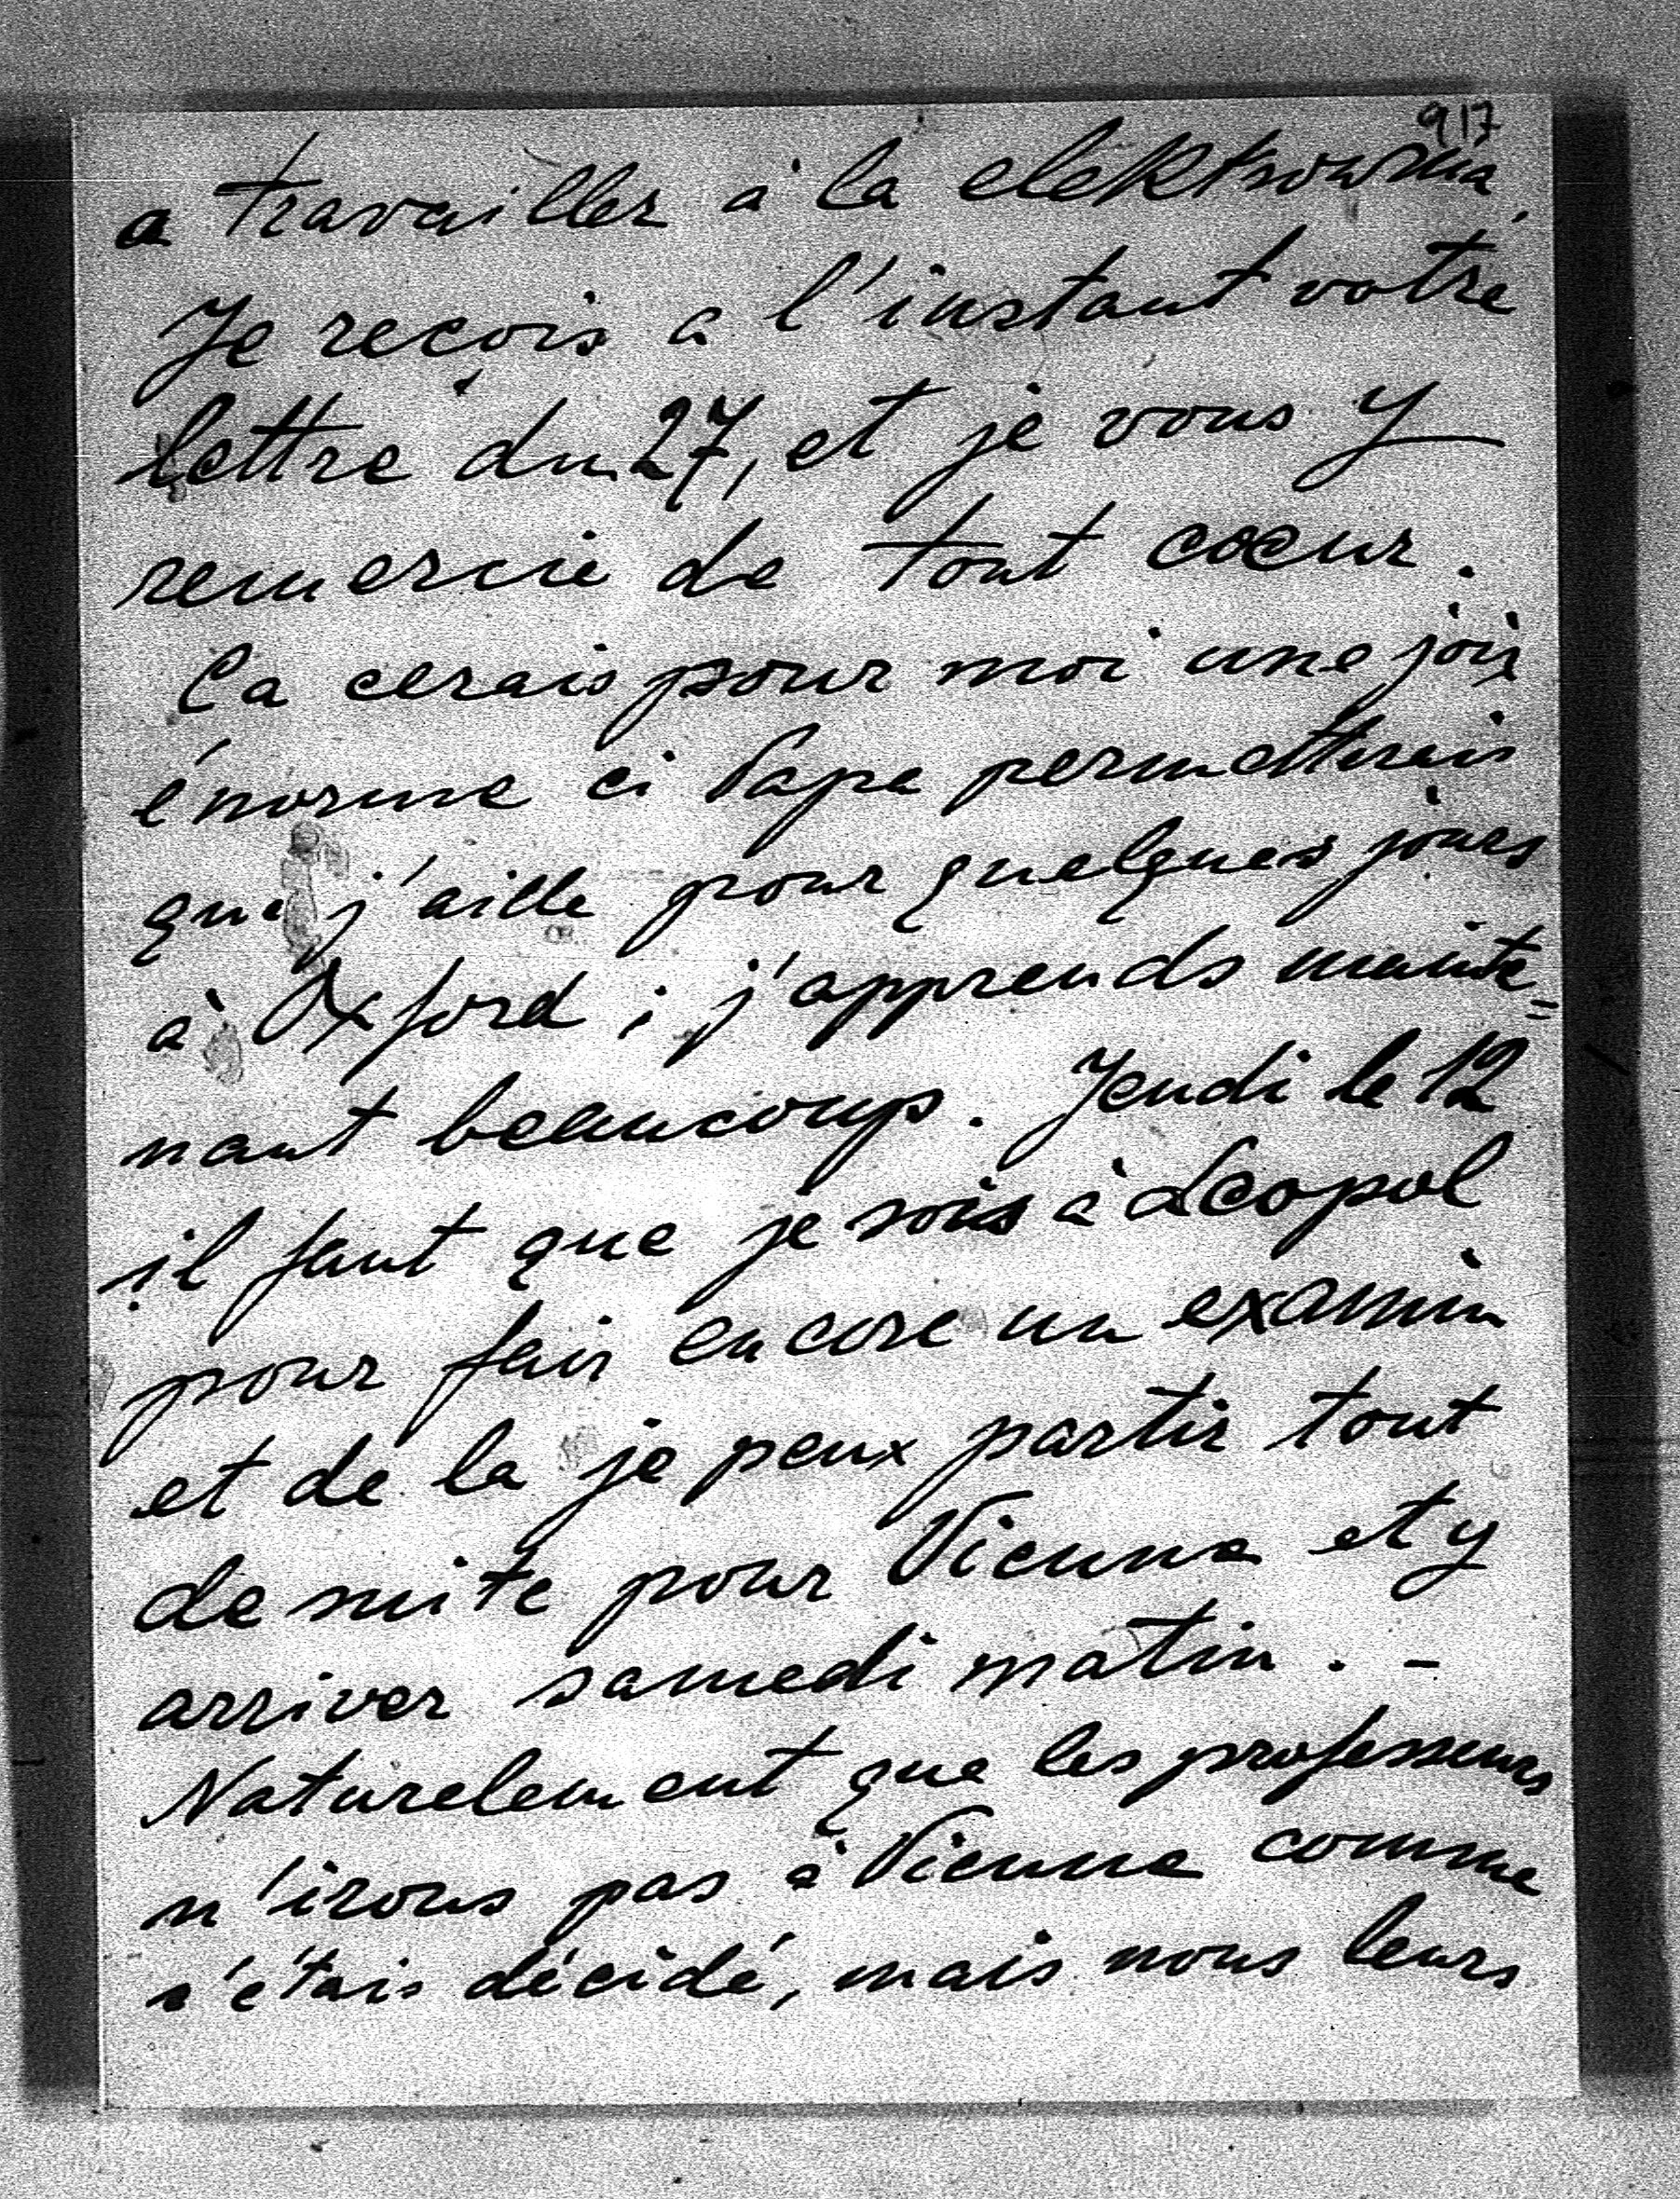 917
a travailler à la elektrownia.
Je reçois a l'instant votre
lettre du 27, et je vous y
remercie de tout cœur.
Ça cerais pour moi une joie
énorme ci Papa permettrais
que j'aille pour quelques jours
à Oxford ; j'apprends mainte=
nant beaucoup. Jeudi le 12
il faut que je sois à Léopol
pour fair encore un examin
et de la je peux partir tout
de suite pour Vienne et y
arriver samedi matin. -
Naturelement que les professeurs
n'irons pas à Vienne comme
s'étais décidé, mais nous leurs